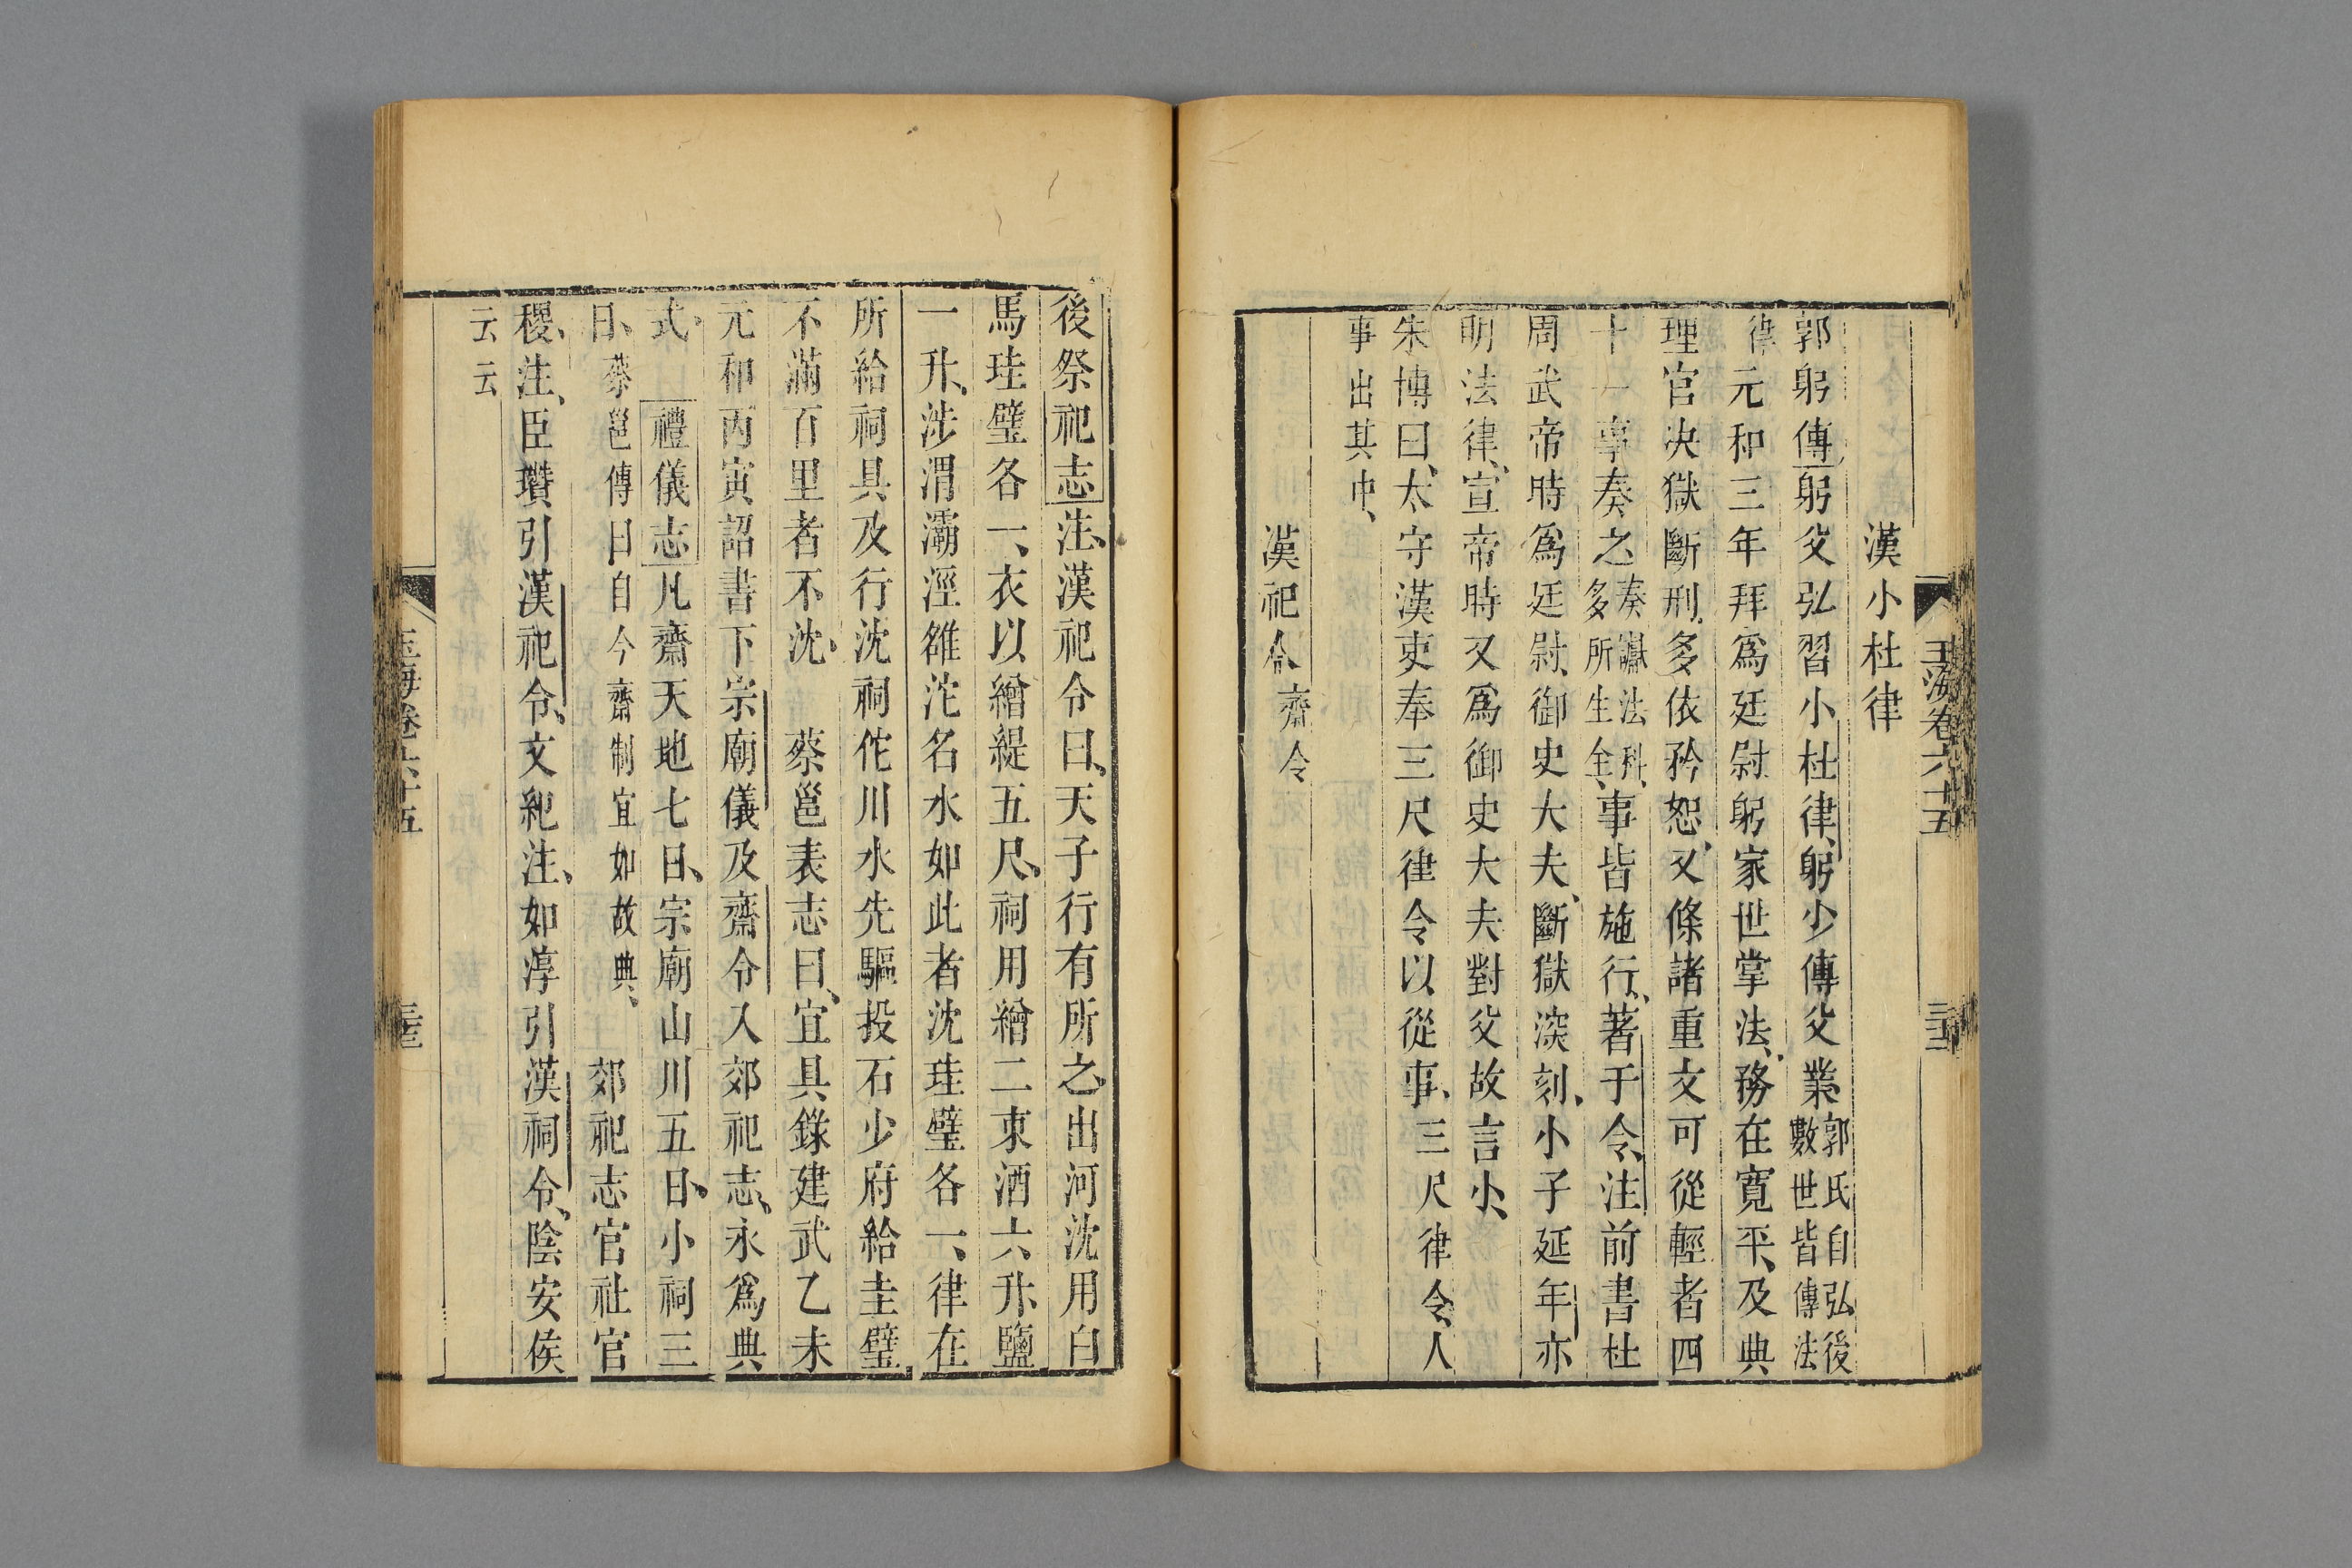 玉海卷六十五
漢小杜律
郭躬傳躬父弘習小杜律躬少傳父業郭氏自弘後數世皆傳法
律元和三年拜爲廷尉躬家世掌法務在寬平及典
理官决獄斷刑多依矜恕又條諸重文可從輕者四
十一事奏之奏讞法科多所生全事皆施行著于令注前書杜
周武帝時爲廷尉御史大夫斷獄深刻小子延年亦
明法律宣帝時又爲御史大夫對父故言小
朱博曰太守漢吏奉三尺律令以從事三尺律令人
事出其中
漢祀令齋令
後祭祀志注漢祀令曰天子行有所之出河沈用白
馬珪璧各一衣以繒緹五尺祠用繒二束酒六升鹽
一升涉渭灞涇雒沱名水如此者沈珪璧各一律在
所給祠具及行沈祠佗川水先驅投石少府給圭璧
不滿百里者不沈 蔡邕表志曰宜具錄建武乙未
元和丙寅詔書下宗廟儀及齋令入郊祀志永爲典
式 禮儀志凡齋天地七日宗廟山川五日小祠三
日蔡邕傳曰自今齋制宜如故典 郊祀志官社官
稷注臣瓚引漢祀令文紀注如淳引漢祠令陰安侯
云云
玉海卷六十五